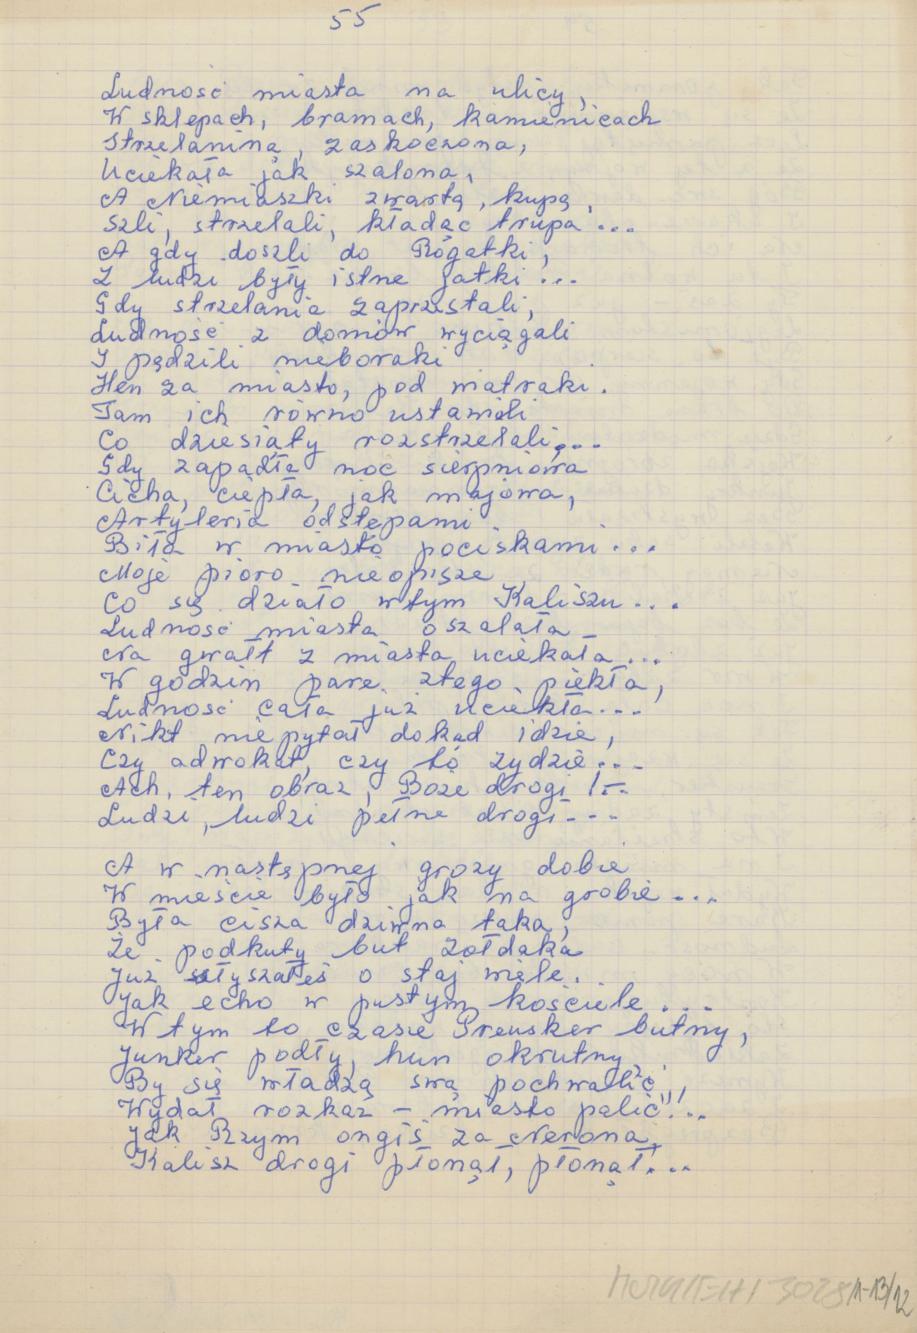 55
Ludność miasta na ulicy,
W sklepach, bramach, kamienicach
Strzelaniną, zaskoczona,
Uciekała jak szalona,
A Niemiaszki zwartą, kupą,
Szli, strzelali, kładąc trupa...
A gdy doszli do Rogatki,
Z ludzi były istne jatki...
Gdy strzelania zaprzestali,
Ludność z domów wyciągali
I pędzili nieboraki
Hen za miasto, pod wiatraki.
Tam ich równo ustawili
Co dziesiąty rozstrzelali...
Gdy zapadła noc sierpniowa
Cicha, ciepła, jak majowa,
Artyleria odstępami
Biła w miasto pociskami...
Moje pióro nieopisze
Co się działo wtym Kaliszu...
Ludność miasta oszalała –
Na gwałt z miasta uciekała...
W godzin parę ztego piekła,
Ludność cała już uciekła...
Nikt niepytał dokąd idzie,
Czy adwokat, czy to żydzie...
Ach, ten obraz, Boże drogi!...
Ludzi, ludzi pełne drogi...
A w następnej grozy dobie
W mieście było jak na grobie...
Była cisza dziwna taka,
Że podkuty but żołdaka
Już słyszałeś o staj wiele.
Jak echo w pustym kościele...
W tym to czasie Preusker butny,
Junker podły, hun okrutny,
By się władzą swą pochwalić,
Wydał rozkaz – miasto palić!!!...
Jak Rzym ongiś za Nerona,
Kalisz drogi płonął, płonął...
3028
11-13/12